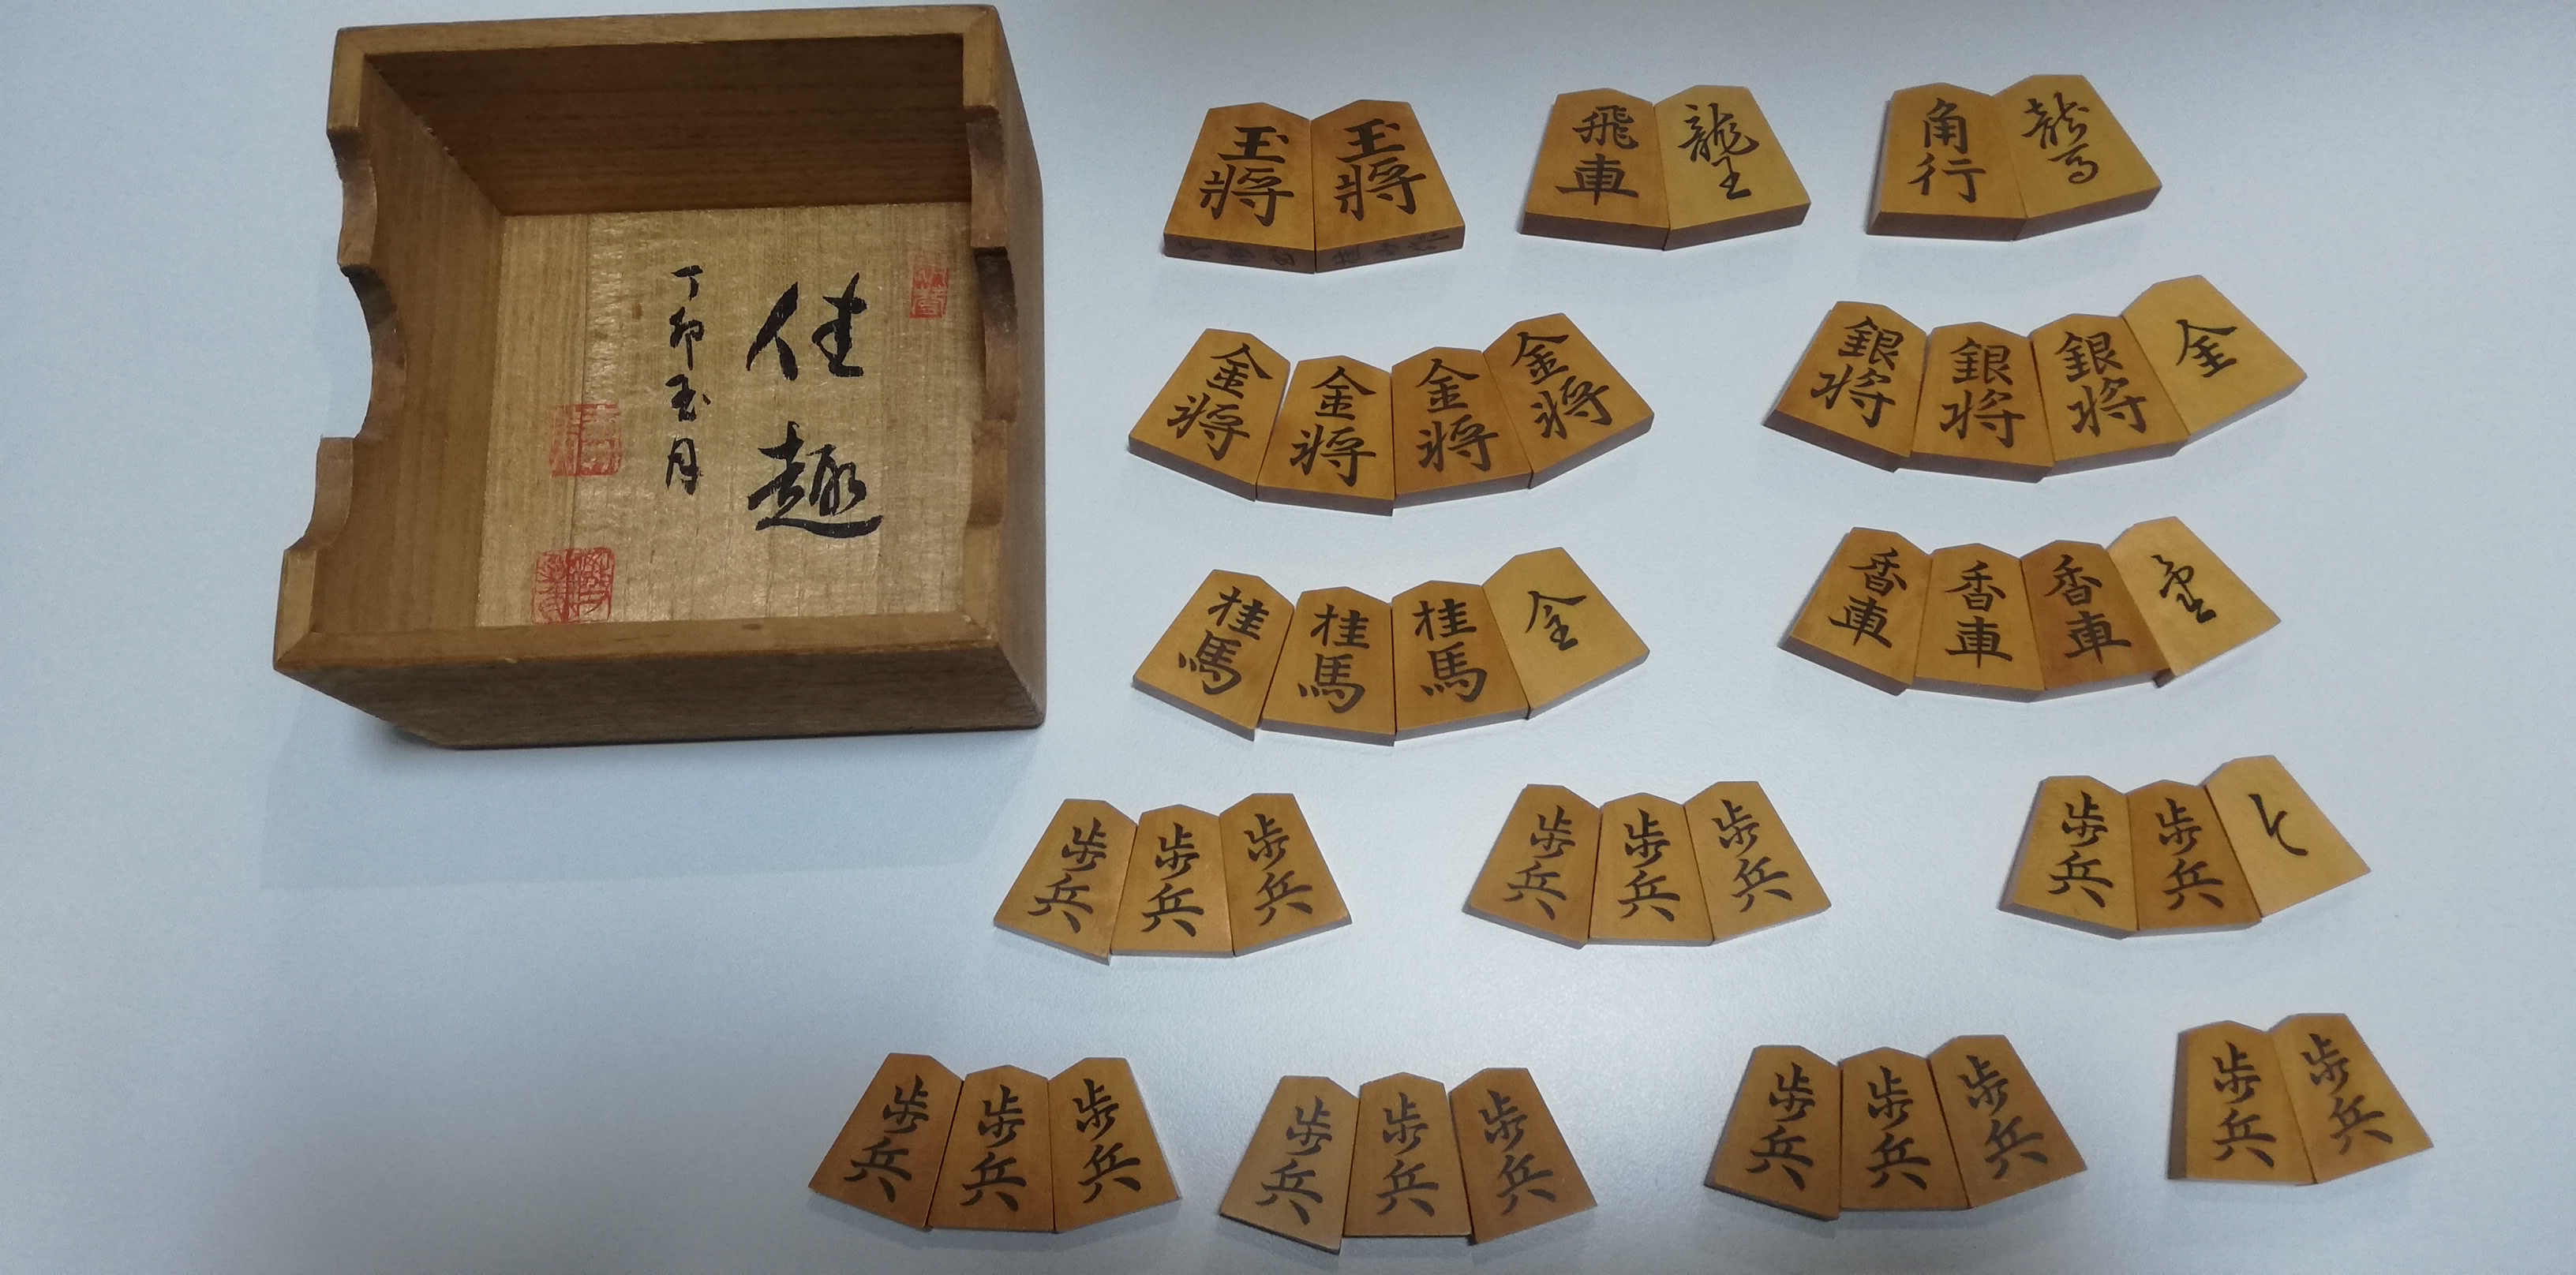 佳趣
丁卯玉月
玉将 玉将
飛車 龍王
角行 龍馬
金将 金将 金将 金将
銀将 銀将 銀将 全
桂馬 桂馬 桂馬 金
香車 香車 香車
歩兵 歩兵 歩兵
歩兵 歩兵 歩兵
歩兵 歩兵 と
歩兵 歩兵 歩兵
歩兵 歩兵 歩兵
歩兵 歩兵 歩兵
歩兵 歩兵